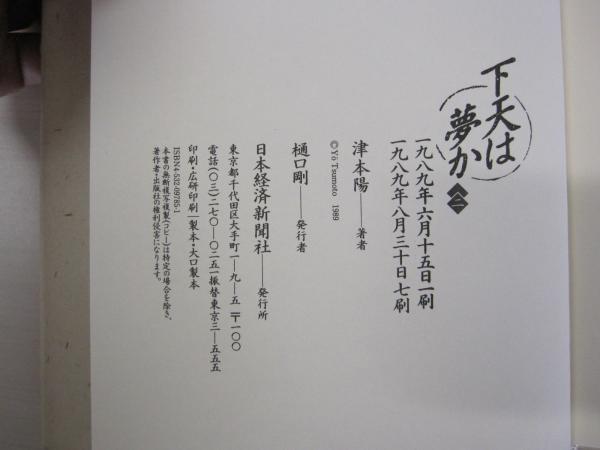 下天は
夢か
一九八九年六月十五日一刷
一九八九年八月三十日七刷
津本陽――著者
©Yō Tsumoto 1989
樋口剛――発行者
日本経済新聞社――発行所
東京都千代田区大手町一―九―五 〒一〇〇
電話(〇三)二七〇―〇二五一振替東京三―五五五
印刷・広研印刷|製本・大口製本
ISBN4-532-09785-1
本書の無断複写複製(コピー)は特定の場合を除き、
著作者・出版社の権利侵害になります。